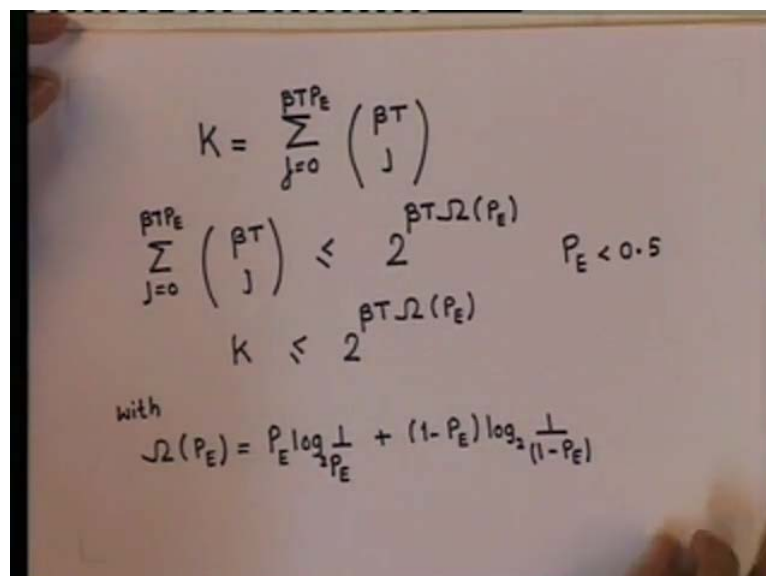 K = βTP_E Σ j=0 ( βT J )
βTP_E Σ J=0 ( βT J ) ≤ 2^{βTΩ(P_E)} P_E < 0.5
K ≤ 2^{βTΩ(P_E)}
with
Ω(P_E) = P_E log_2 1/P_E + (1-P_E) log_2 1/(1-P_E)